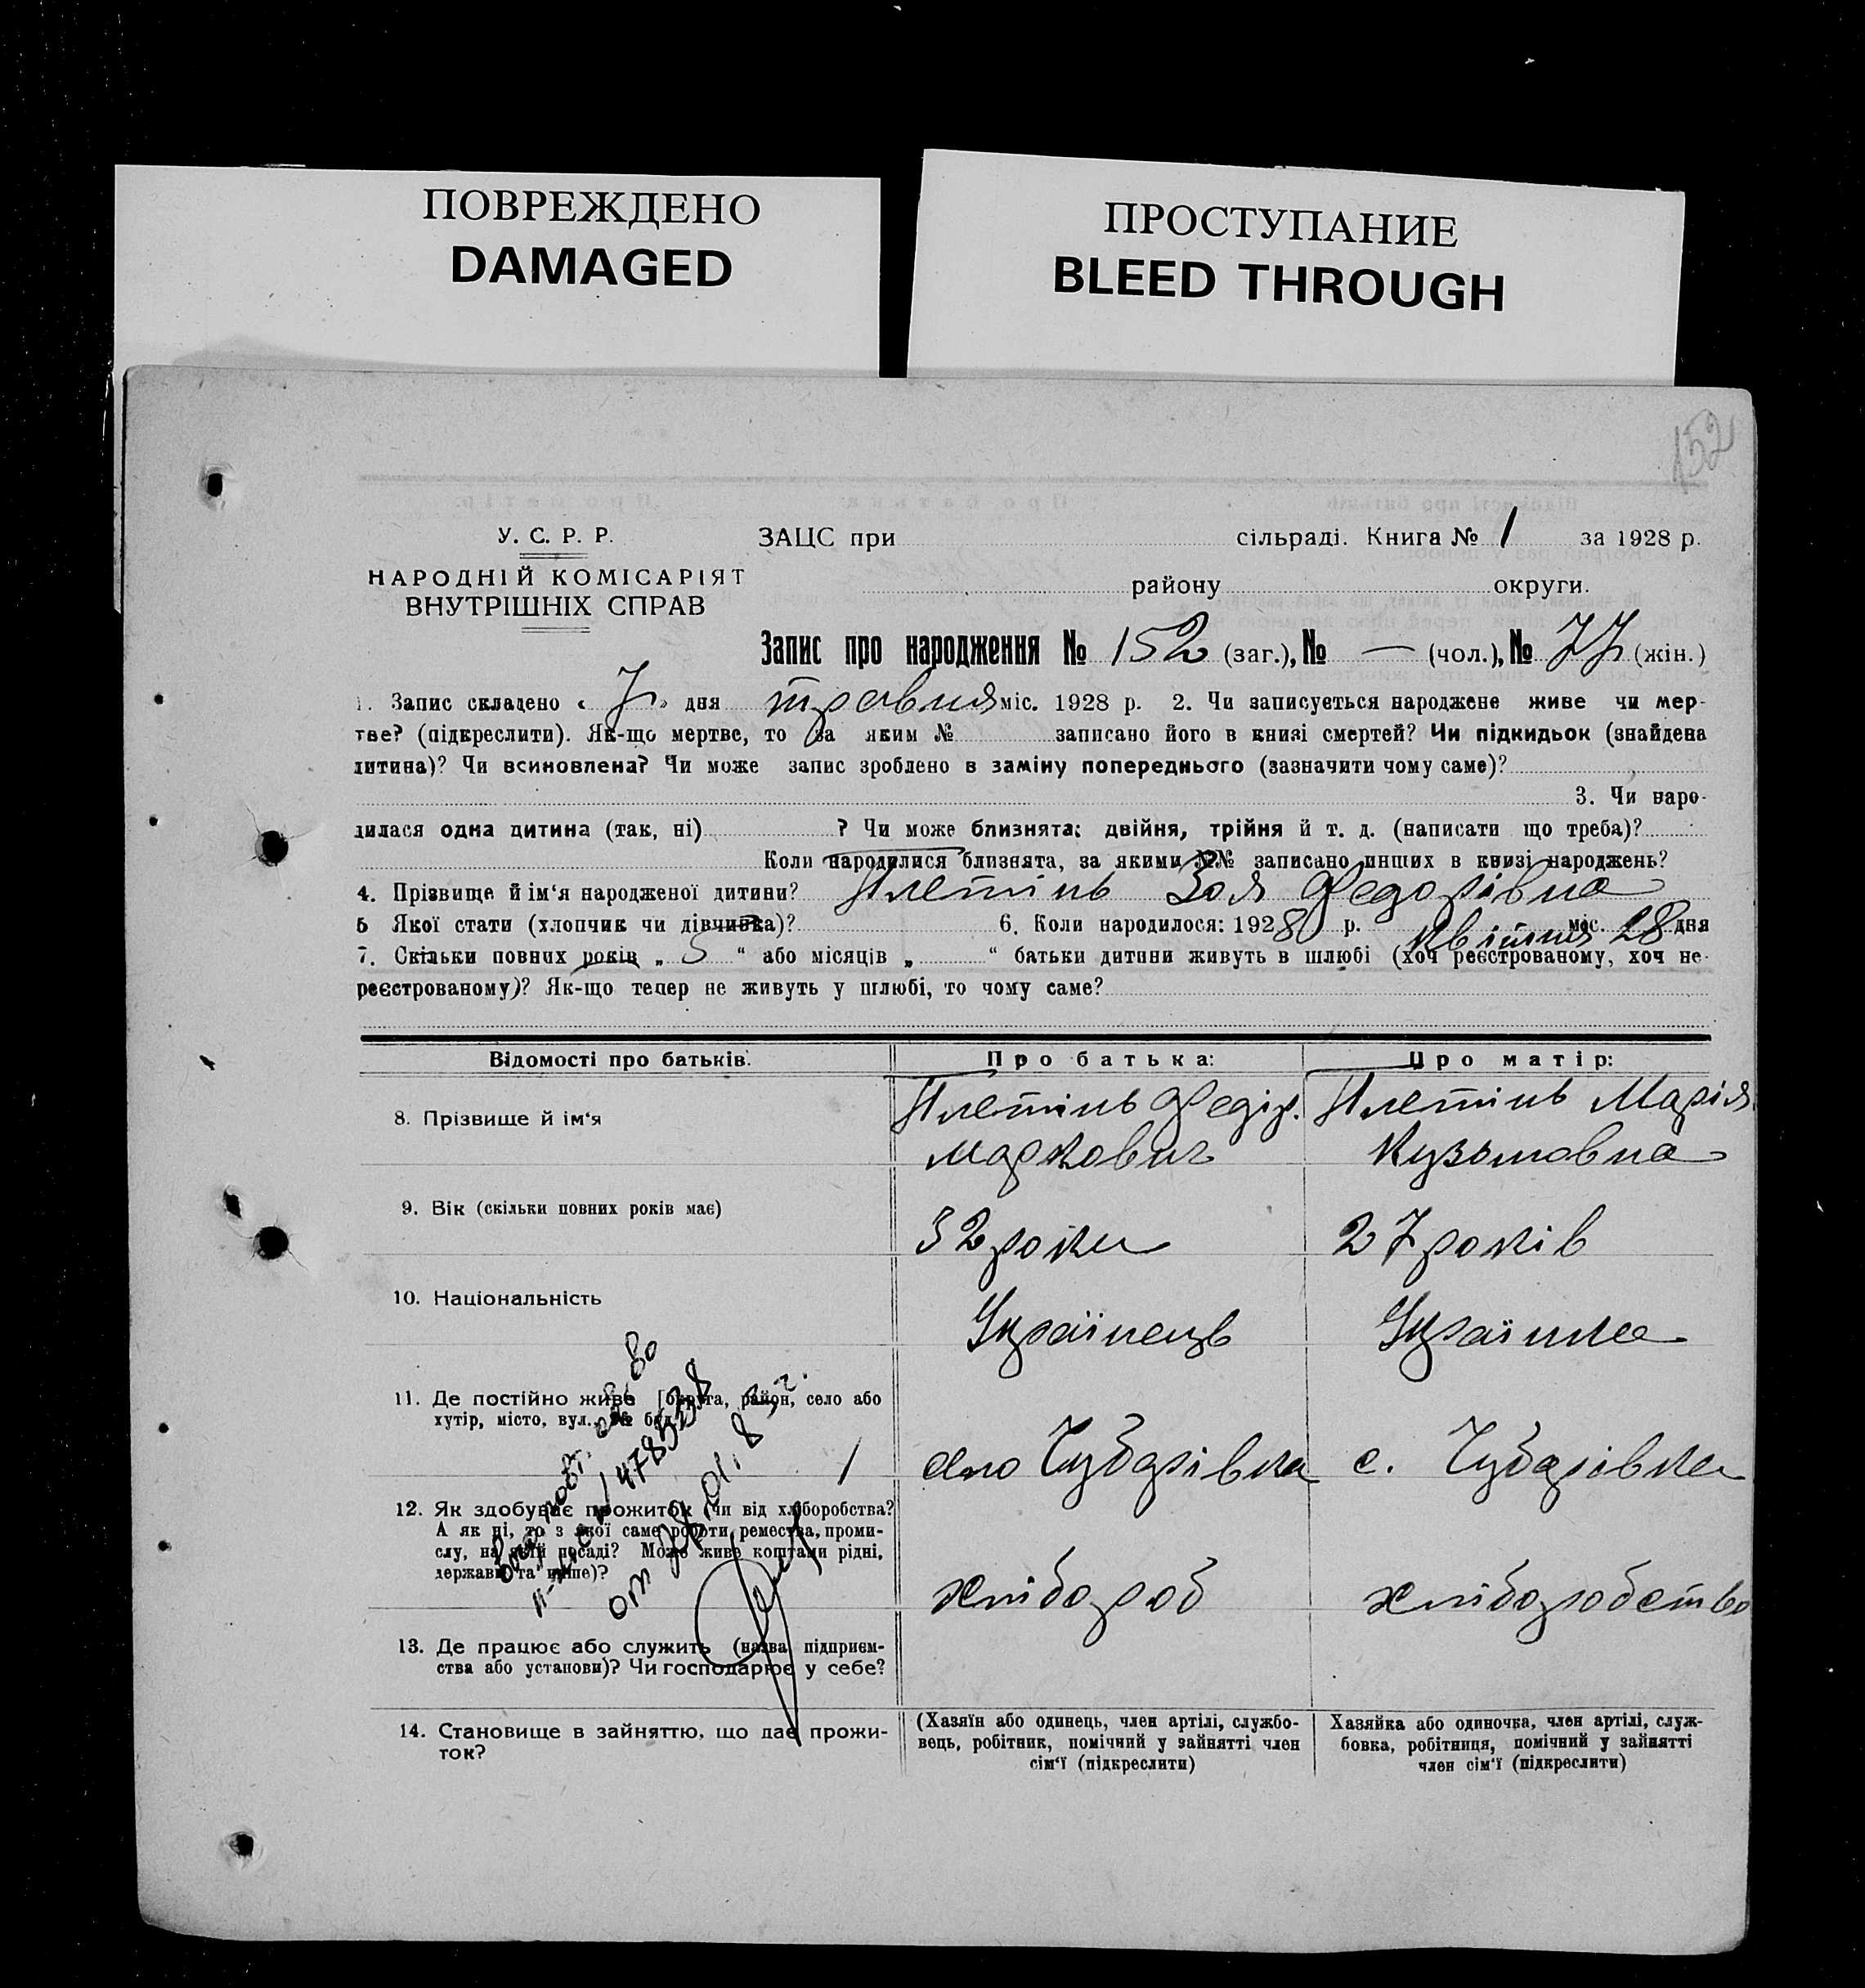 ПОВРЕЖДЕНО
DAMAGED
ПРОСТУПАНИЕ
BLEED THROUGH
152
У. С. Р. Р.
НАРОДНІЙ КОМІСАРІЯТ
ВНУТРІШНІХ СПРАВ
ЗАЦС при сільраді. Книга № 1 за 1928 р.
району округи.
Запис про народження № 152 (заг.), № — (чол.), № 77 (жін.)
1. Запис складено « 7 » дня травня міс. 1928 р. 2. Чи записується народжене живе чи мер-
тве? (підкреслити). Як-що мертве, то за яким № записано його в книзі смертей? Чи підкидьок (знайдена
дитина)? Чи всиновлена? Чи може запис зроблено в заміну попереднього (зазначити чому саме)?
3. Чи наро-
дилася одна дитина (так, ні) ? Чи може близнята: двійня, трійня й т. д. (написати що треба)?
Коли народилися близнята, за якими №№ записано инших в книзі народжень?
4. Прізвище й ім‘я народженої дитини? Плетінь Зоя Федорівна
5 Якої стати (хлопчик чи дівчинка)? 6. Коли народилося: 1928 р. квітня міс. 28 дня
7. Скільки повних років „ 5 “ або місяців „ “ батьки дитини живуть в шлюбі (хоч реєстрованому, хоч не-
реєстрованому)? Як-що тепер не живуть у шлюбі, то чому саме?
Відомості про батьків.
Про батька:
Про матір:
8. Прізвище й ім‘я
Плетінь Федір.
Маркович
Плетінь Марія
Кузьмовна
9. Вік (скільки повних років має)
32 роки
27 років
10. Національність
Українець
Українка
11. Де постійно живе [округа, район, село або
хутір, місто, вул., № буд.]
село Чубарівка
с. Чубарівка
12. Як здобуває прожиток (чи від хліборобства?
А як ні, то з якої саме роботи ремества, проми-
слу, на якій посаді? Може живе коштами рідні,
держави та инше)?
хлібороб
хліборобство
13. Де працює або служить (назва підприєм-
ства або установи)? Чи господарює у себе?
14. Становище в зайняттю, що дає прожи-
ток?
(Хазяїн або одинець, член артілі, службо-
вець, робітник, помічний у зайнятті член
сім‘ї (підкреслити)
Хазяйка або одиночка, член артілі, служ-
бовка, робітниця, помічний у зайнятті
член сім‘ї (підкреслити)